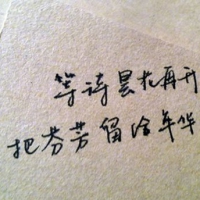 等待昙花再开
把芬芳留给年华